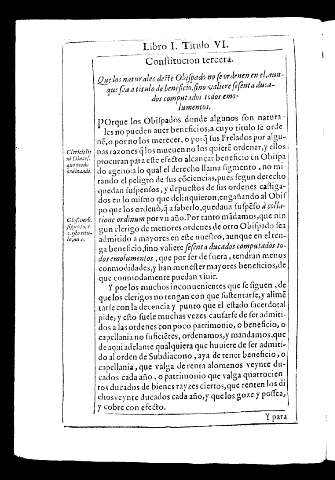 Libro I. Titulo VI.
Constitucion tercera.
Que los naturales deste Obispado no se ordenen en el, aun-
que sea a titulo de beneficio, sino valiere sesenta duca-
dos computados todos emo-
lumentos.
POrque los Obispados donde algunos son natura-
les no pueden auer beneficios, a cuyo titulo se orde
nē, o por no los merecer, o porq̄ los Prelados por algu-
nos razones q̄ los mueuen no los quierē ordenar, y ellos
procuran para este efecto alcançar beneficio en Obispa
do ageno a lo qual el derecho llama figmento, no mi-
rando el peligro de sus cōciencias, pues segun derecho
quedan suspensos, y depuestos de sus ordenes castiga-
dos en lo mismo que delinquieron, engañando al Obis
po que los ordenó, q̄ a saberlo, quedaua suspēso à colla-
tione ordinum por vn año. Por tanto mādamos, que nin
gun clerigo de menores ordenes de otro Obispado sea
admitido a mayores en este nuestro, aunque en el ten-
ga beneficio, sino valiere sesenta ducados computados to-
dos emolumentos, que por ser de fuera, tendran menos
comodidades, y han menester mayores beneficios, de
que commodamente puedan viuir.
Y por los muchos inconuenientes que se siguen, de
que los clerigos no tengan con que sustentarse, y alimē
tarse con la decencia y punto que el estado sacerdotal
pide, y esto suele muchas vezes causarse de ser admiti-
dos a las ordenes con poco patrimonio, o beneficio, o
capellania no suficiētes, ordenamos, y mandamos, que
de aqui adelante qualquiera que huuiere de ser admiti-
do al orden de Subdiacono, aya de tener beneficio, o
capellania, que valga de renta alomenos veynte du-
cados cada año, o patrimonio que valga quatrocien
tos ducados de bienes rayzes ciertos, que renten los di
chos veynte ducados cada año, y que los goze y possea,
y cobre con efecto.
Y para